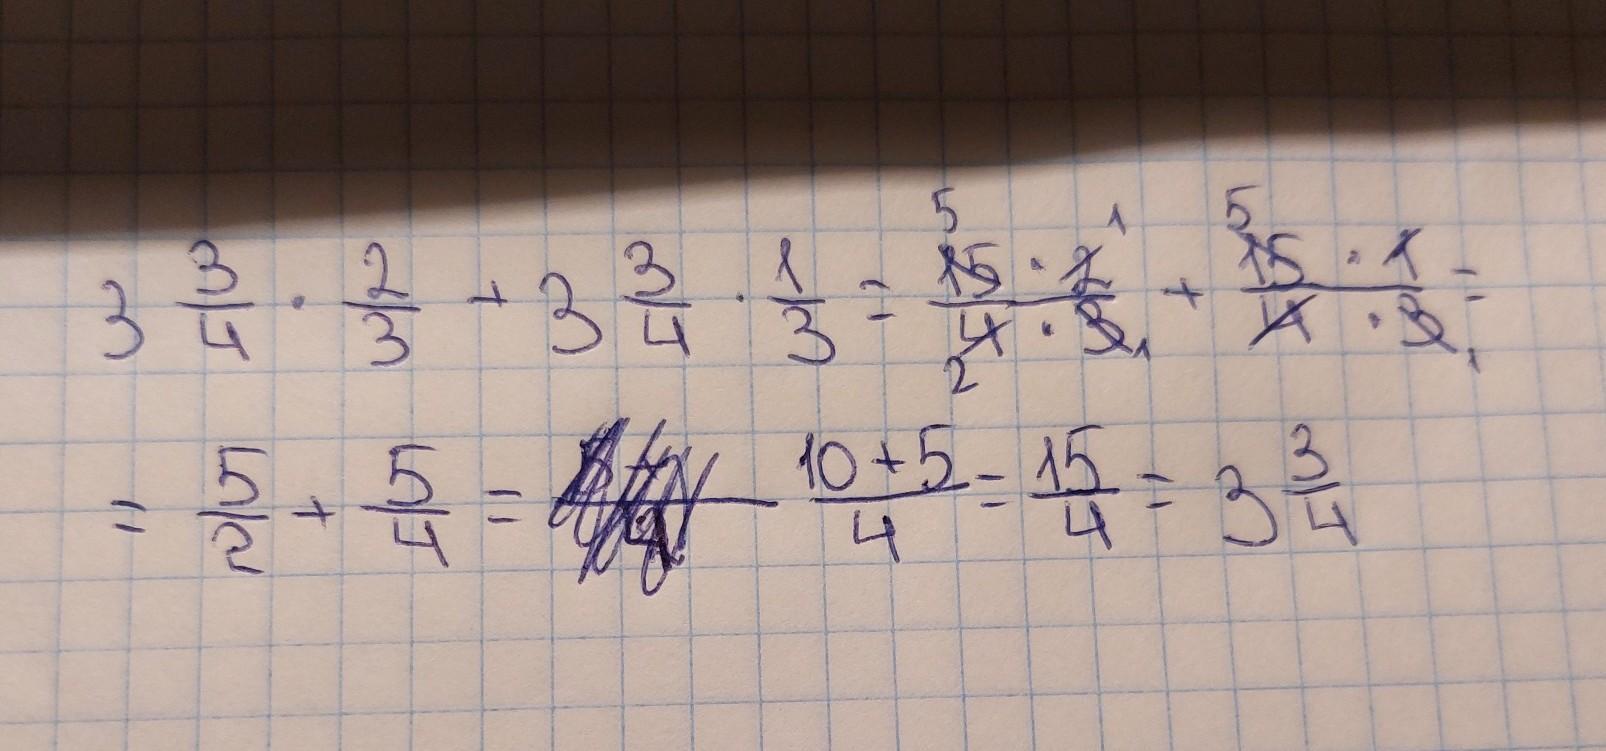 3 3/4 · 2/3 + 3 3/4 · 1/3 = 15 · 2 / 4 · 3 + 15 · 1 / 4 · 3 =
= 5/2 + 5/4 = 10 + 5 / 4 = 15/4 = 3 3/4